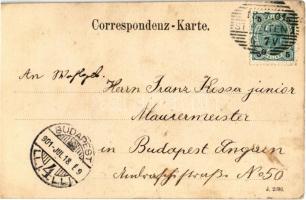 Correspondenz-Karte.
An Wohlgeb.
Herrn Franz Kossa junior
Maurermeister
in Budapest Ungarn
Andrassistraße No 50
BUDAPEST
901 JUL 18
J. 2396.